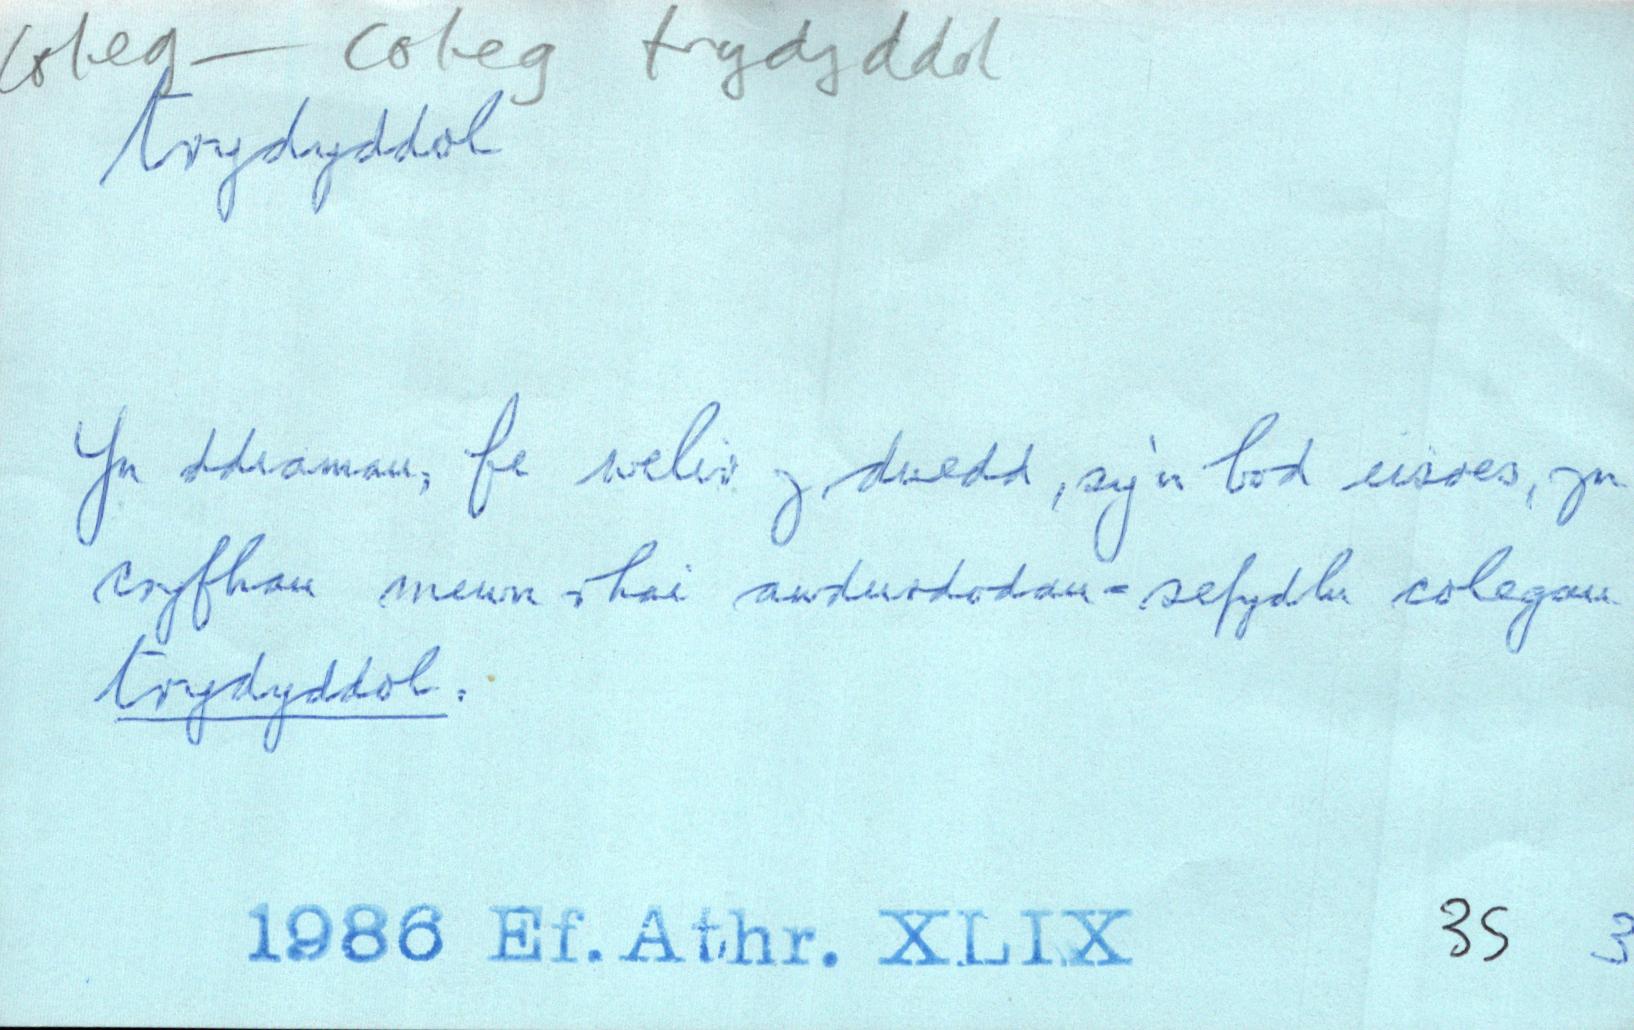 Coleg — Coleg trydyddol
trydyddol
Yn ddiamau, fe welir y duedd, sy'n bod eisoes, yn
cryfhau mewn rhai awdurdodau - sefydlu colegau
trydyddol.
1986 Ef. Athr. XLIX 35 3